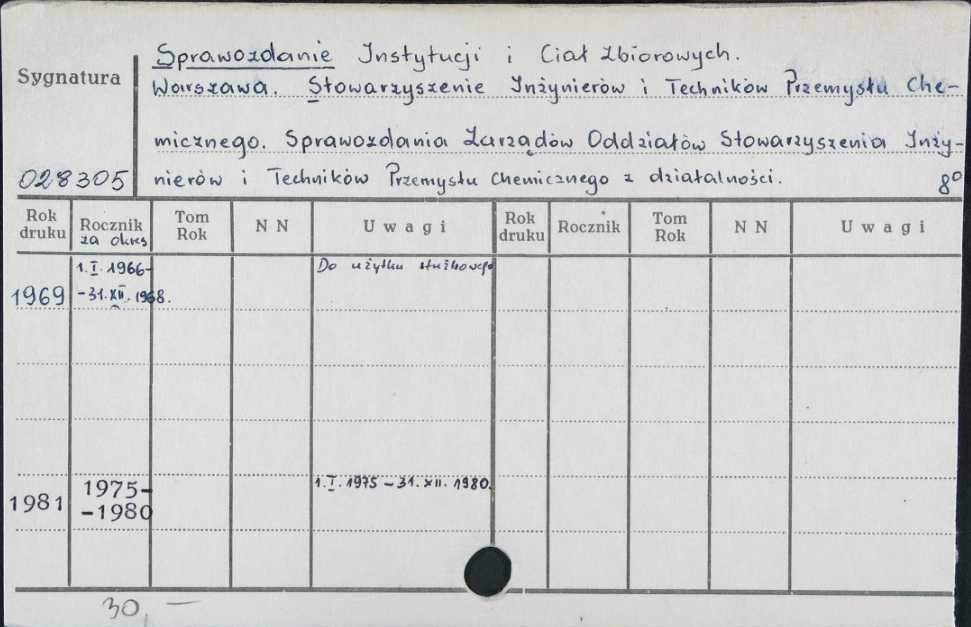 Sprawozdanie Instytucji i Ciał Zbiorowych.
Sygnatura
Warszawa. Stowarzyszenie Inżynierów i Techników Przemysłu Che-
micznego. Sprawozdania Zarządów Oddziałów Stowarzyszenia Inży-
028305 nierów i Techników Przemysłu Chemicznego z działalności. 8°
Rok druku Rocznik za okres Tom Rok N N Uwagi Rok druku Rocznik Tom Rok N N Uwagi
1.I.1966- Do użytku służbowego
1969 -31.XII.1968.
1981 1975- 1.I.1975 – 31.XII.1980.
-1980
30,—